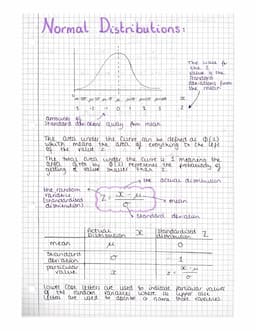 Normal Distributions:
The value for
the Z
value is the
standard
deviations from
the mean
x
-3 -2 -1 0 1 2 3 Z
amounts of
standard deviations away from mean
The area under the curve can be defined as Φ(z)
which means the area of everything to the left
of the value z.
The total area under the curve is 1 meaning the
area given by Φ(z) represents the probability of
getting a value smaller than z.
the random
variable
(standardised
distribution)
the actual distribution
Z = x - μ / σ
mean
standard deviation
actual distribution X
standardised distribution Z
mean μ 0
standard deviation σ 1
particular value x z = x - μ / σ
lower case letters are used to indicate particular values
of the random variables where as upper case
letters are used to describe or name those variables.